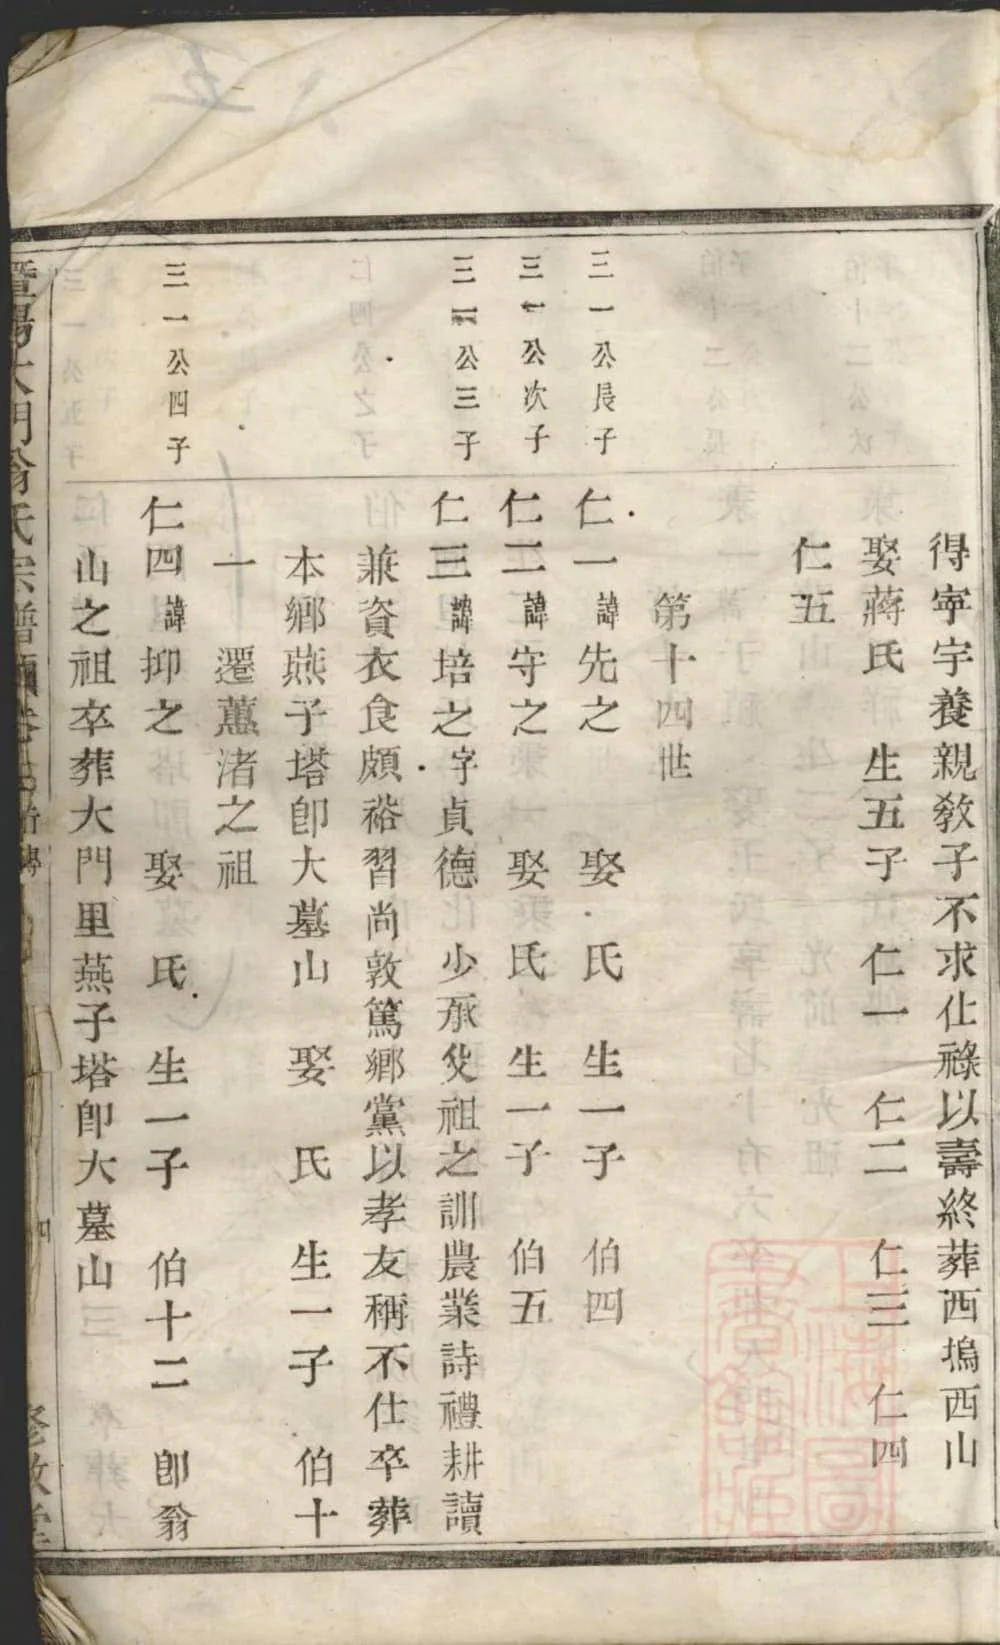 得寕宇養親敎子不求仕祿以壽終葬西塢西山
娶蔣氏 生五子 仁一 仁二 仁三 仁四
仁五
第十四世
三一公長子 仁一諱先之 娶 氏 生一子 伯四
三一公次子 仁二諱守之 娶 氏 生一子 伯五
三一公三子 仁三諱培之字貞德 少承父祖之訓農業詩禮耕讀
兼資衣食頗裕習尚敦篤鄉黨以孝友稱不仕卒葬
本鄉燕子塔卽大墓山 娶 氏 生一子 伯十
一 遷蕙渚之祖
三一公四子 仁四諱抑之 娶 氏 生一子 伯十二 卽翁
山之祖卒葬大門里燕子塔卽大墓山
暨陽大門翁氏宗譜